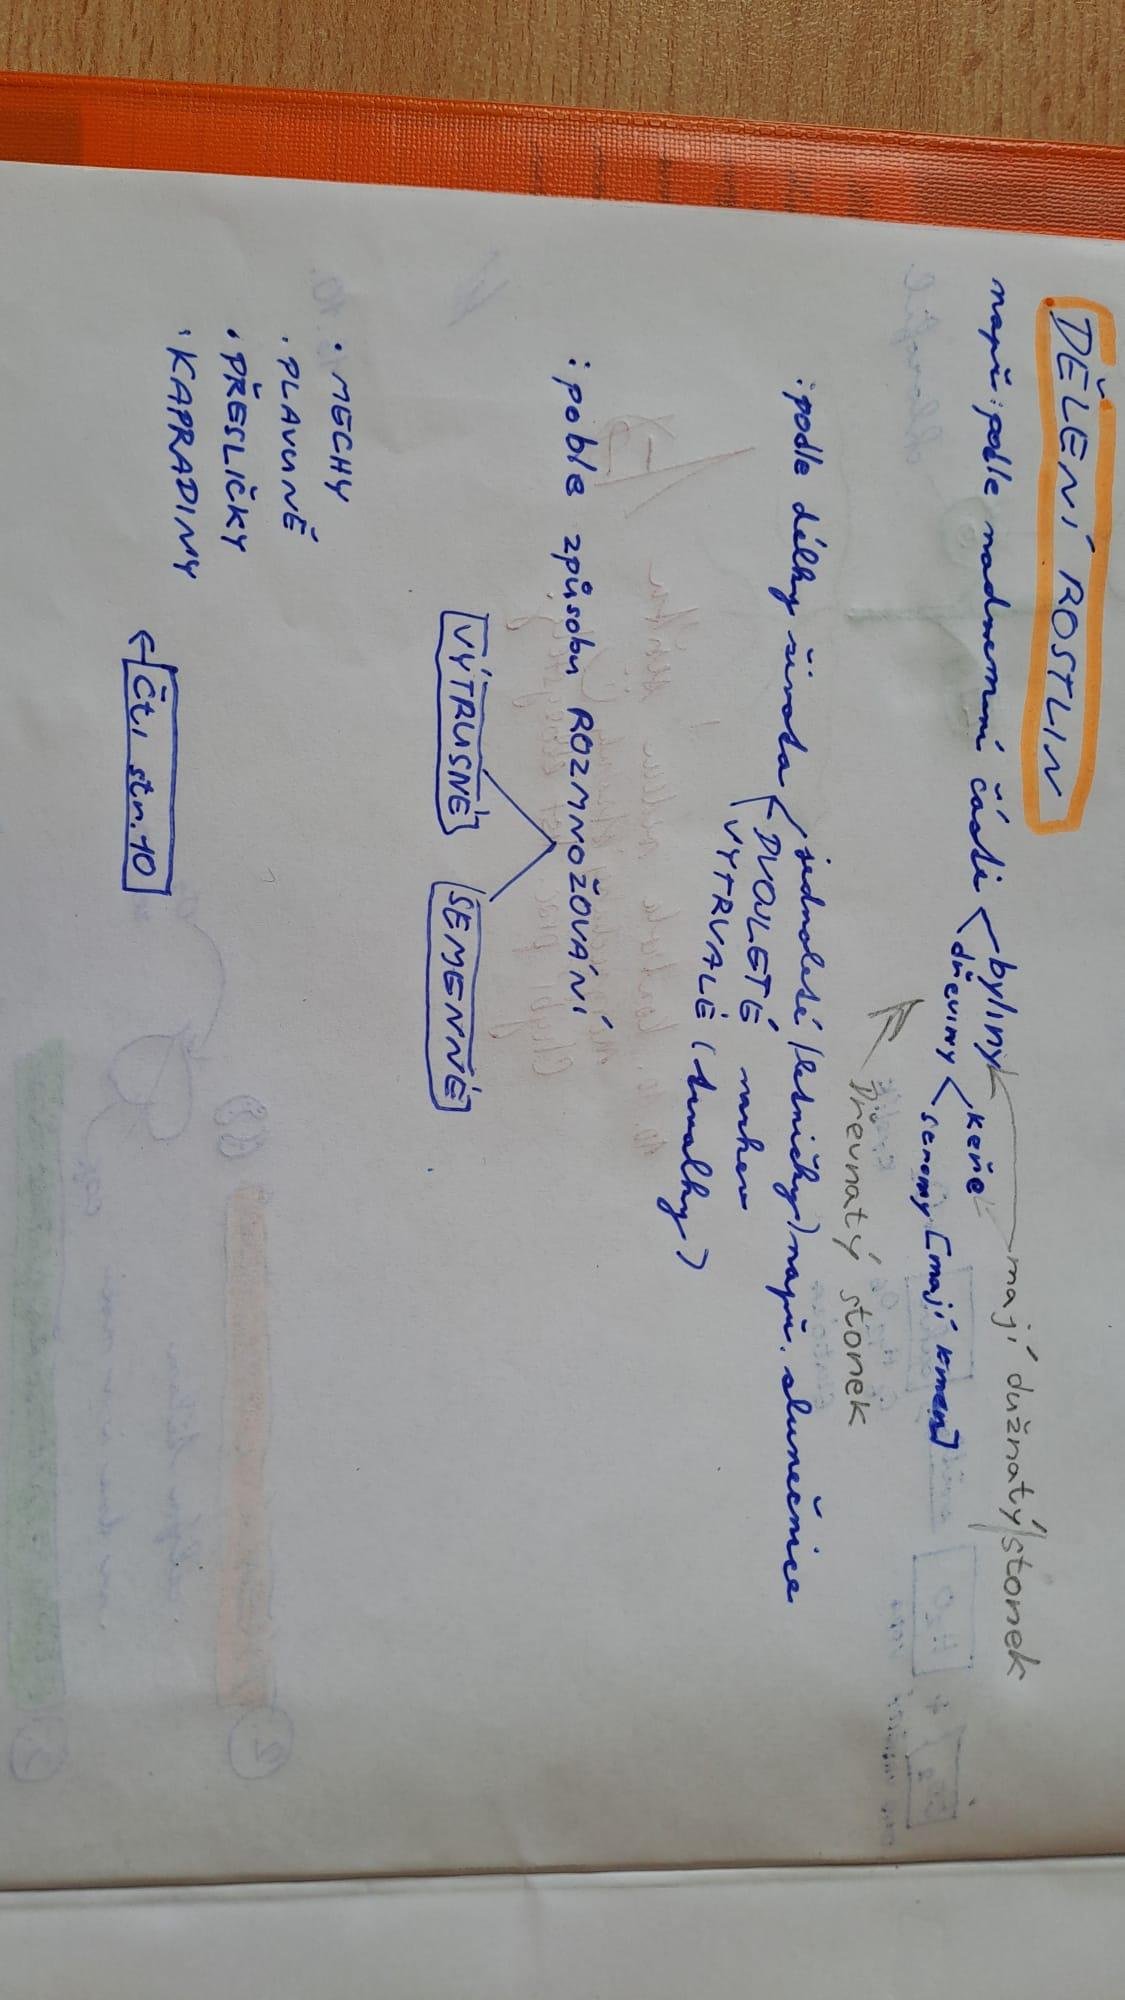 DĚLENÍ ROSTLIN
např: podle nadzemní části < byliny mají dužnatý stonek
dřeviny < keře
stromy [mají kmen]
Dřevnatý stonek
: podle délky života < jednoleté (letničky) např. slunečnice
DVOULETÉ mrkev
VYTRVALÉ (trvalky)
: poble způsobu ROZMNOŽOVÁNÍ
VÝTRUSNÉ SEMENNÉ
· MECHY
· PLAVUNĚ
· PŘESLIČKY
· KAPRADINY
čti str. 10